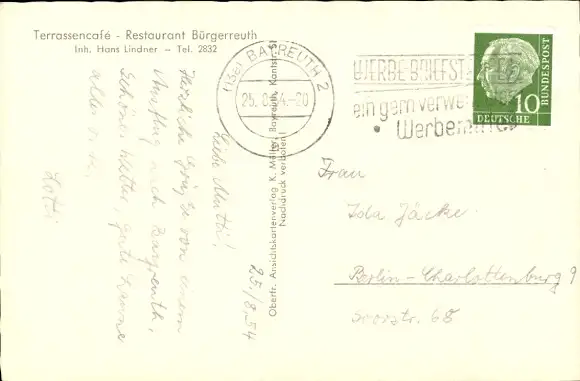 Terrassencafé - Restaurant Bürgerreuth
Inh. Hans Lindner — Tel. 2832
(13a) BAYREUTH 2
25. 8. 54.-20
WERBE-BRIEFST
ein gern verwe
Werbemittel
DEUTSCHE
BUNDESPOST
10
Oberfr. Ansichtskartenverlag K. Müller, Bayreuth, Kantstr. 5
Nachdruck verboten!
25./8.54
Liebe Mutti!
Herzliche Grüße von einem
Ausflug nach Bayreuth,
Schönes Wetter, gute Laune
alles
Frau
Ida Jäcke
Berlin-Charlottenburg 9
Soorstr. 68